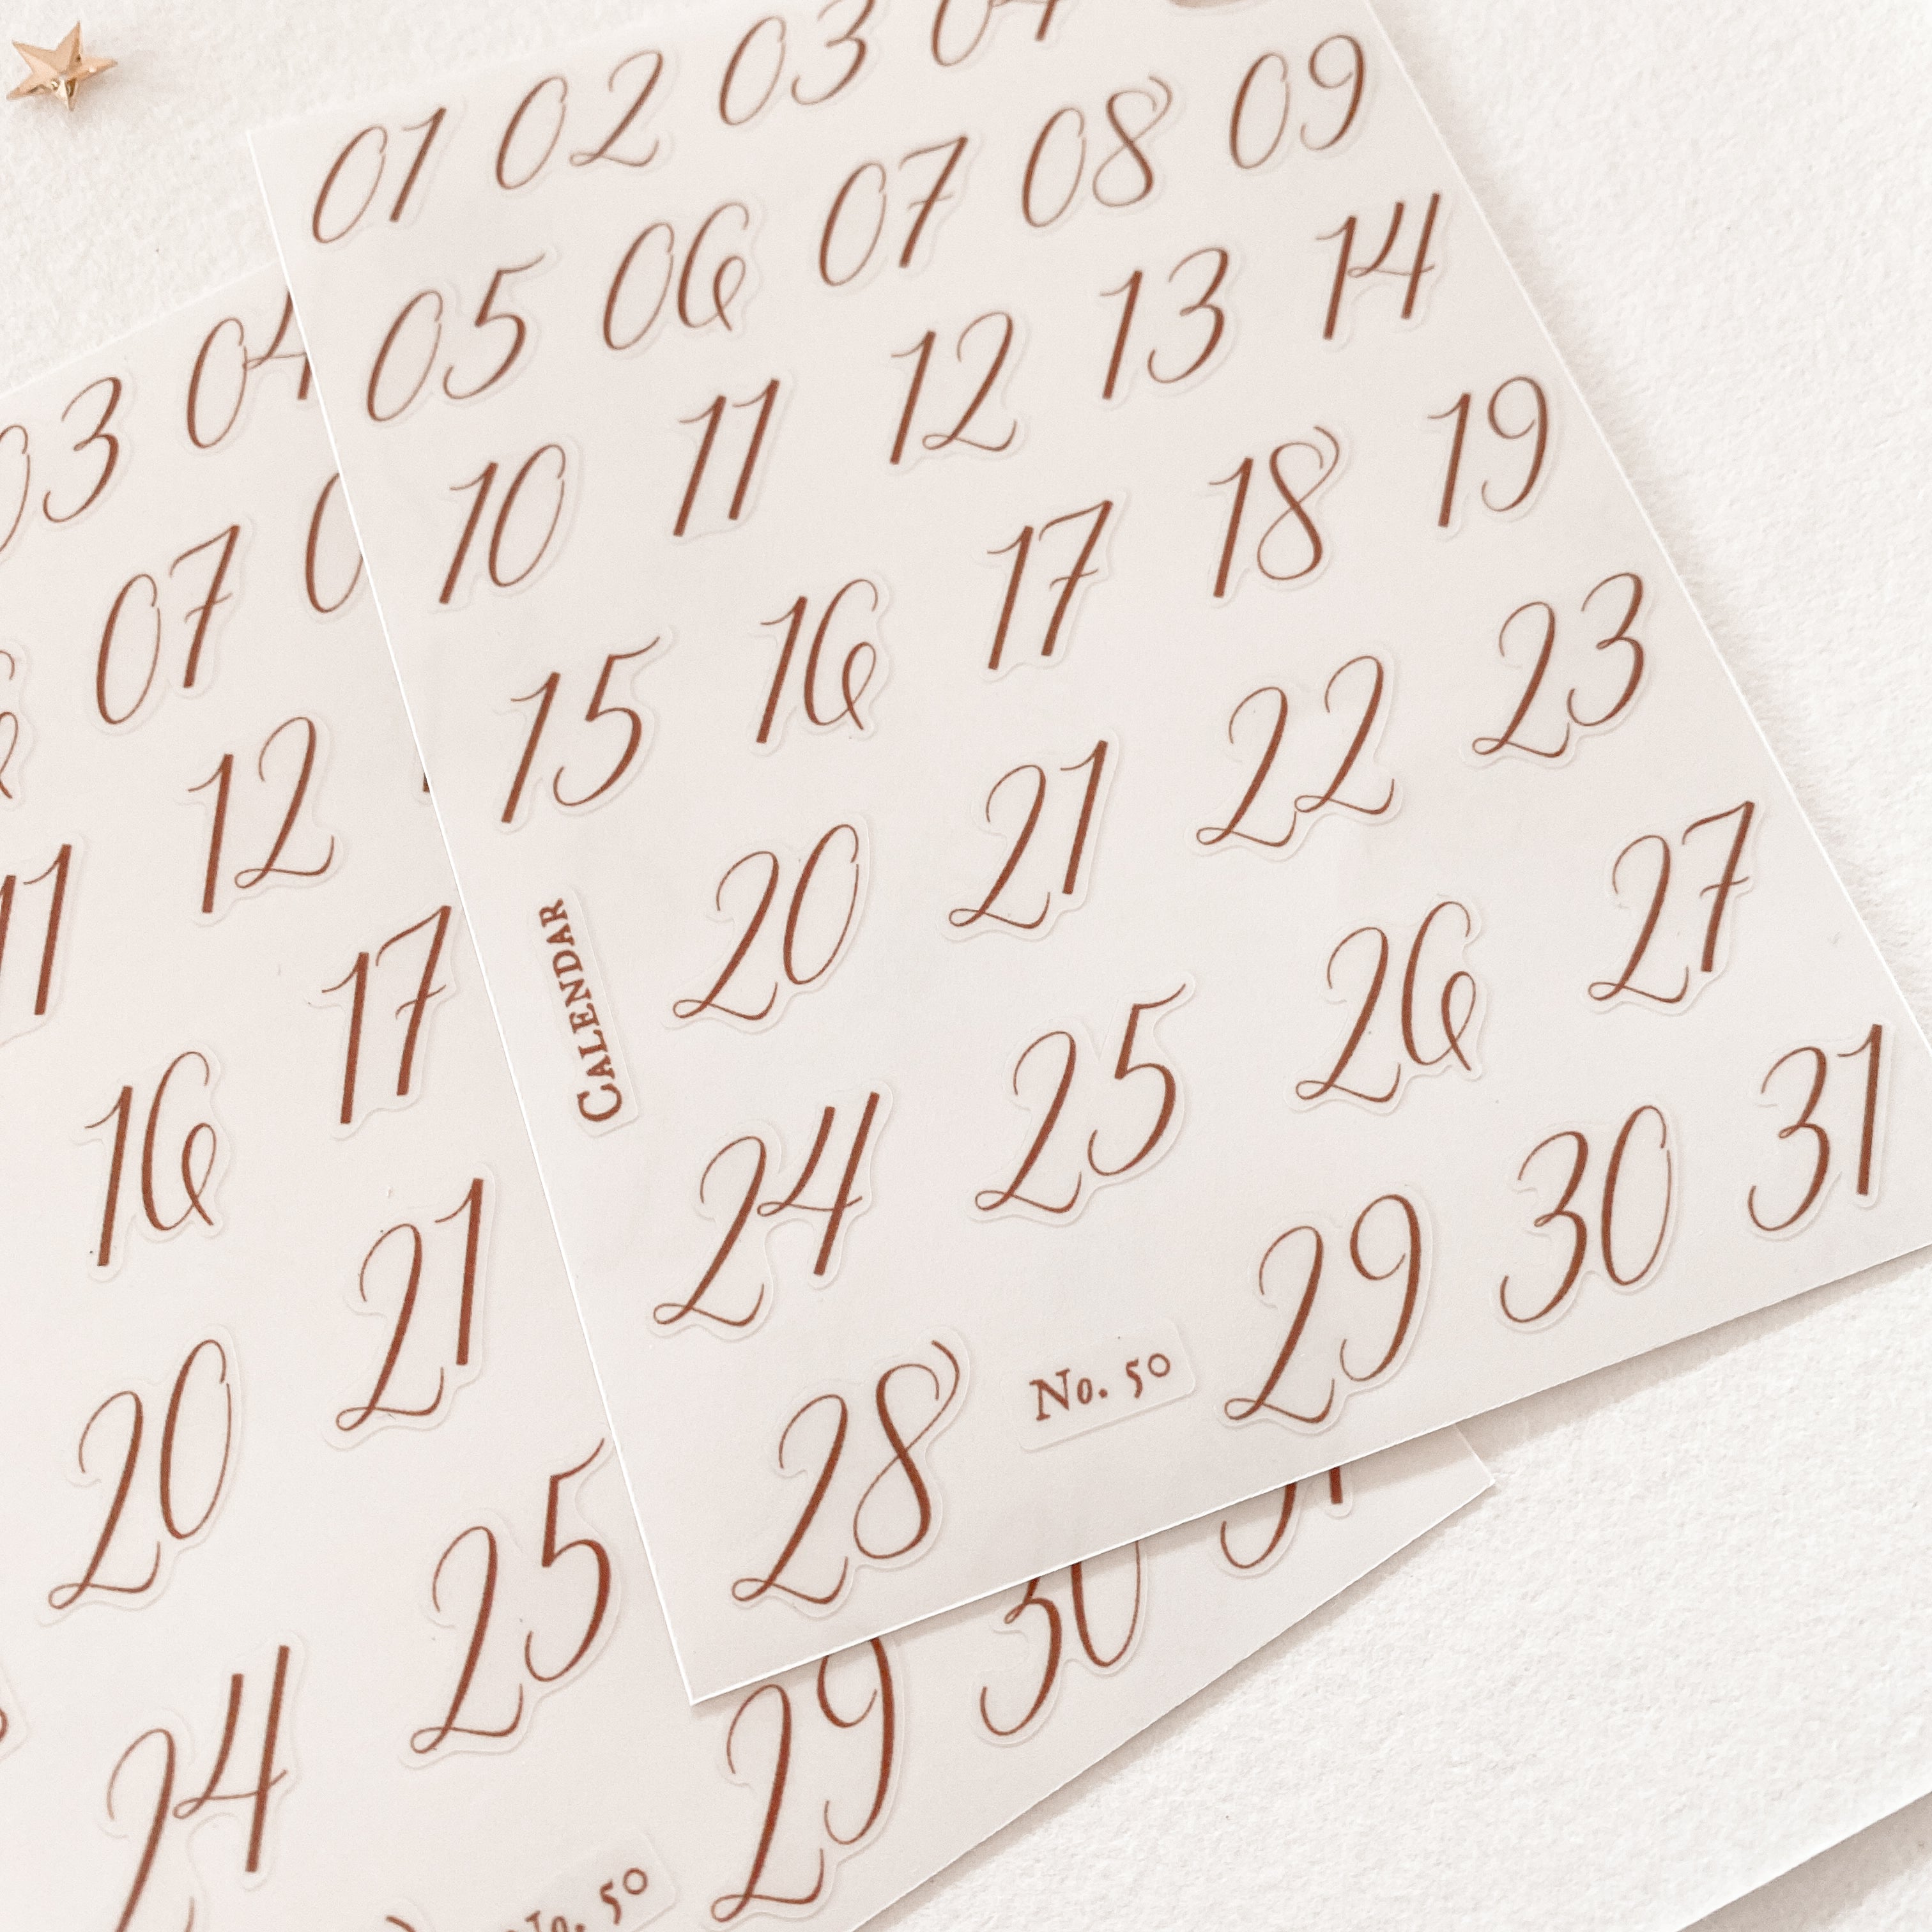 01 02 03 04
05 06 07 08 09
10 11 12 13 14
15 16 17 18 19
20 21 22 23
CALENDAR
24 25 26 27
28 No. 50 29 30 31
03 04
07
11 12
16 17
20 21
24 25
No. 50 29 30 31